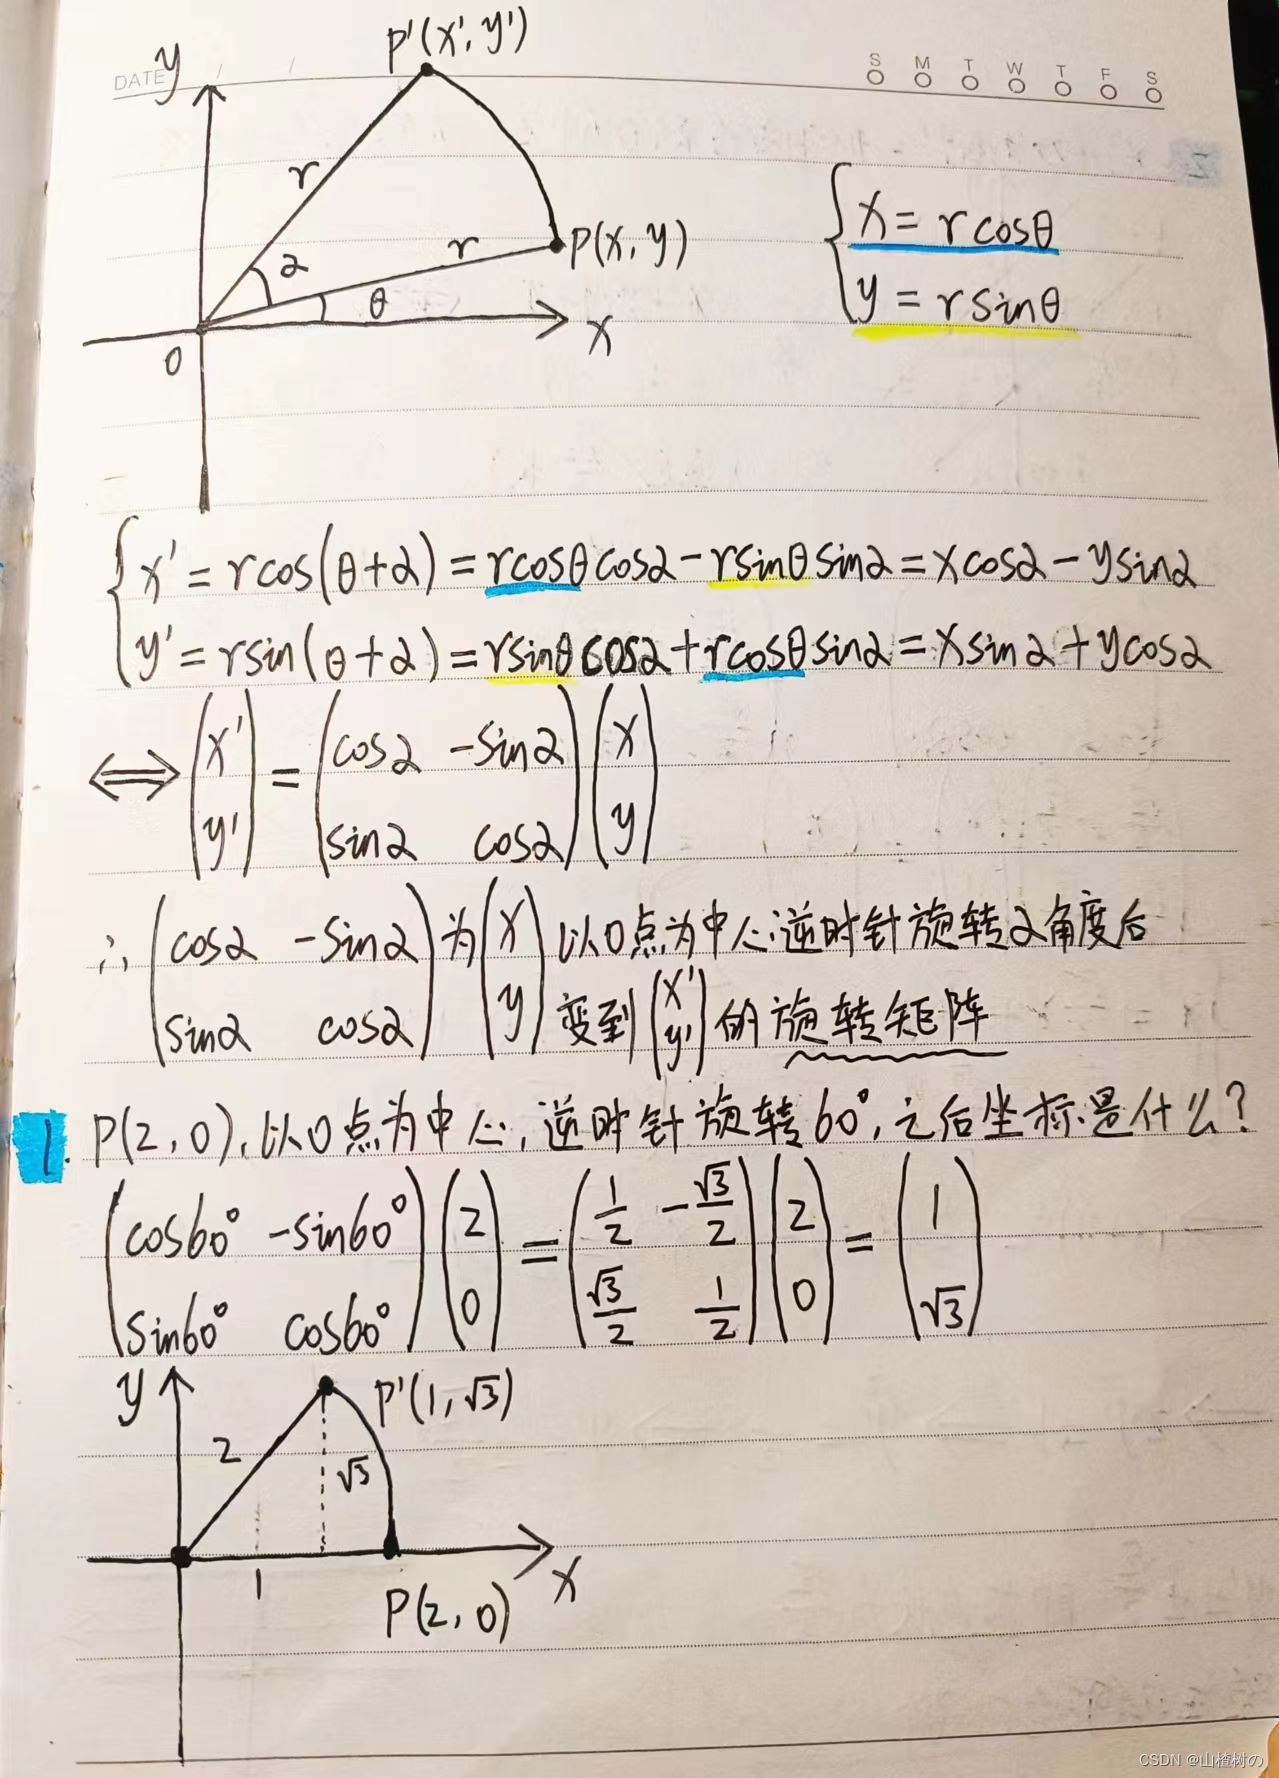 DATE / /
S M T W T F S
y
P'(x', y')
r
α
r
P(x, y)
θ
x
0
x = rcosθ
y = rsinθ
x' = rcos(θ+α) = rcosθcosα - rsinθsinα = xcosα - ysinα
y' = rsin(θ+α) = rsinθcosα + rcosθsinα = xsinα + ycosα
⟺ (x' y') = (cosα -sinα
sinα cosα) (x y)
∴ (cosα -sinα sinα cosα) 为 (x y) 以0点为中心逆时针旋转α角度后
变到 (x' y') 的旋转矩阵
1. P(2, 0), 以0点为中心, 逆时针旋转60°, 之后坐标是什么?
(cos60° -sin60° sin60° cos60°) (2 0) = (1/2 -√3/2 √3/2 1/2) (2 0) = (1 √3)
y
P'(1, √3)
2
√3
1
x
P(2, 0)
CSDN @山楂树の